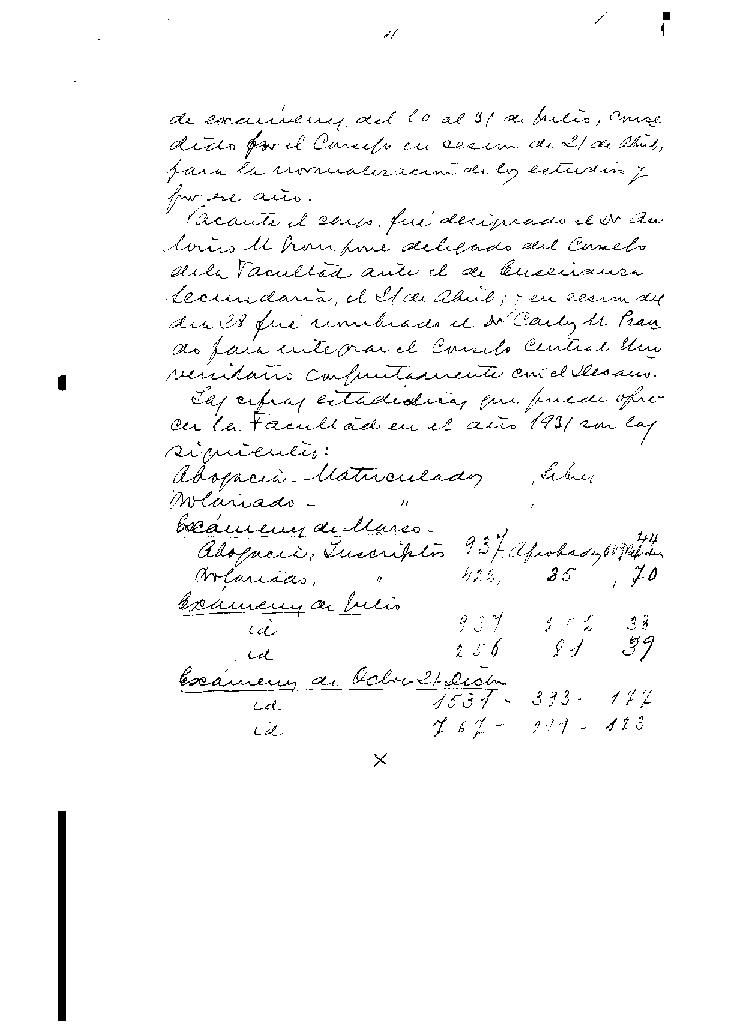 de exámenes del 10 al 31 de Julio, conce
dido por el Consejo en sesion de 21 de Abril,
para la normalizacion de los estudios y
por ese año.
Vacante el cargo, fué designado el Dr An
tonio M Grompone delegado del Consejo
de la Facultad ante el de Enseñanza
Secundaria, el 21 de Abril; y en sesion del
dia 28 fué nombrado el Dr Carlos M Pran
do para integrar el Consejo Central Uni
versitario conjuntamente con el Decano.
Las cifras estadisticas que puede ofre-
cer la Facultad en el año 1931 son las
siguientes:
Abogacía - Matriculados , Libres
Notariado - " "
Exámenes de Marzo -
Abogacía, Inscriptos 937 Aprobados 44
Notariado, " 35 , 70
Exámenes de Julio
id 937 38
id 256 91 39
Exámenes de Octbre 21 Dicbre
id 1531 - 393 - 177
id 767 - - 123
X